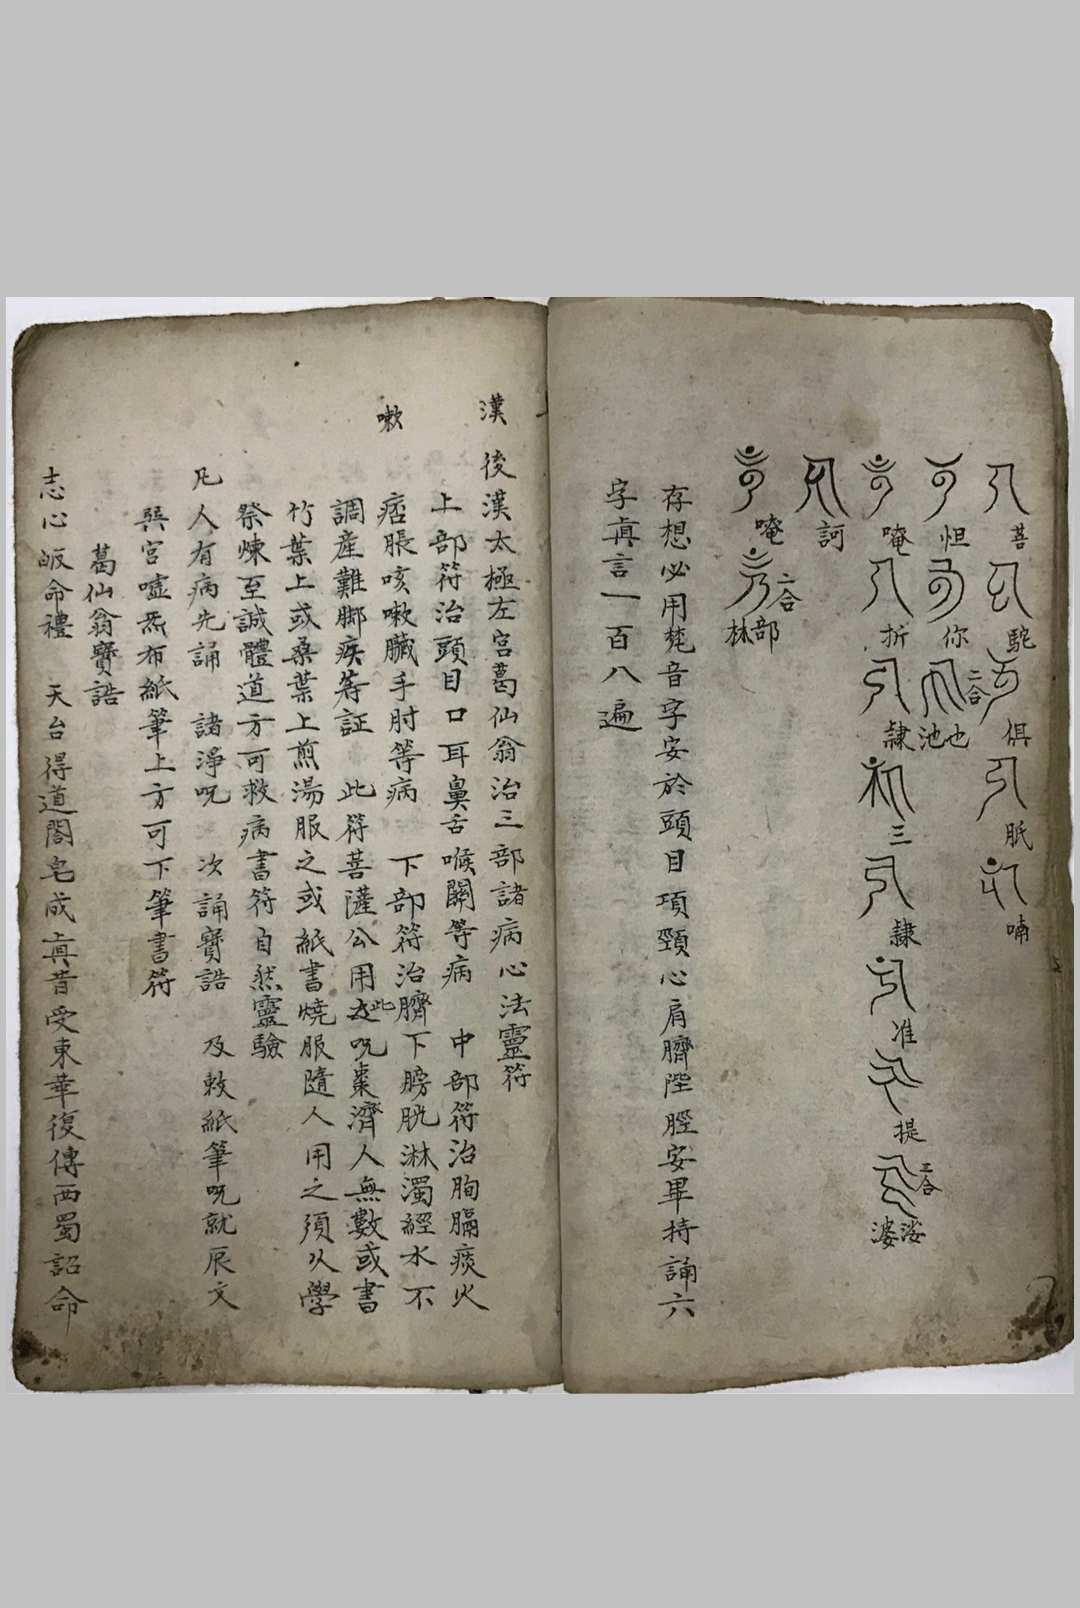 菩 馱 俱 胝 喃
怛 你 二合 也 池
唵 折 隸 三 隸 准 提 三合 婆
訶
唵 二合 部 林
存想必用梵音字安於頭目項頸心肩臍陛脛安畢持誦六
字眞言一百八遍
漢
後漢太極左宮葛仙翁治三部諸病心法靈符
上部符治頭目口耳鼻舌喉關等病 中部符治胸膈痰火
嗽
痞脹咳嗽臟手肘等病 下部符治臍下膀胱淋濁經水不
調產難脚疾等証 此符菩薩公用此呪棗濟人無數或書
竹葉上或桑葉上煎湯服之或紙書燒服隨人用之須以學
祭煉至誠體道方可救病書符自然靈驗
凡人有病先誦 諸淨呪 次誦寶誥 及敕紙筆呪就辰文
巽宮噓炁布紙筆上方可下筆書符
葛仙翁寶誥
志心皈命禮 天台得道閣皂成眞昔受東華復傳西蜀詔命